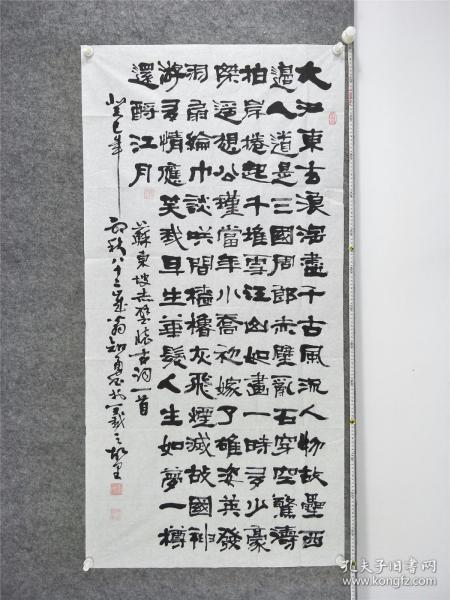 大江東去浪淘盡千古風流人物故壘西
邊人道是三國周郎赤壁亂石穿空驚濤
拍岸捲起千堆雪江山如畫一時多少豪
傑遥想公瑾當年小喬初嫁了雄姿英發
羽扇綸巾談笑間檣櫓灰飛煙滅故國神
游多情應笑我早生華髮人生如夢一樽
還酹江月
蘇東坡赤壁懷古詞一首
癸巳年初秋八十三歲翁
孔夫子旧书网
www.kongfz.com